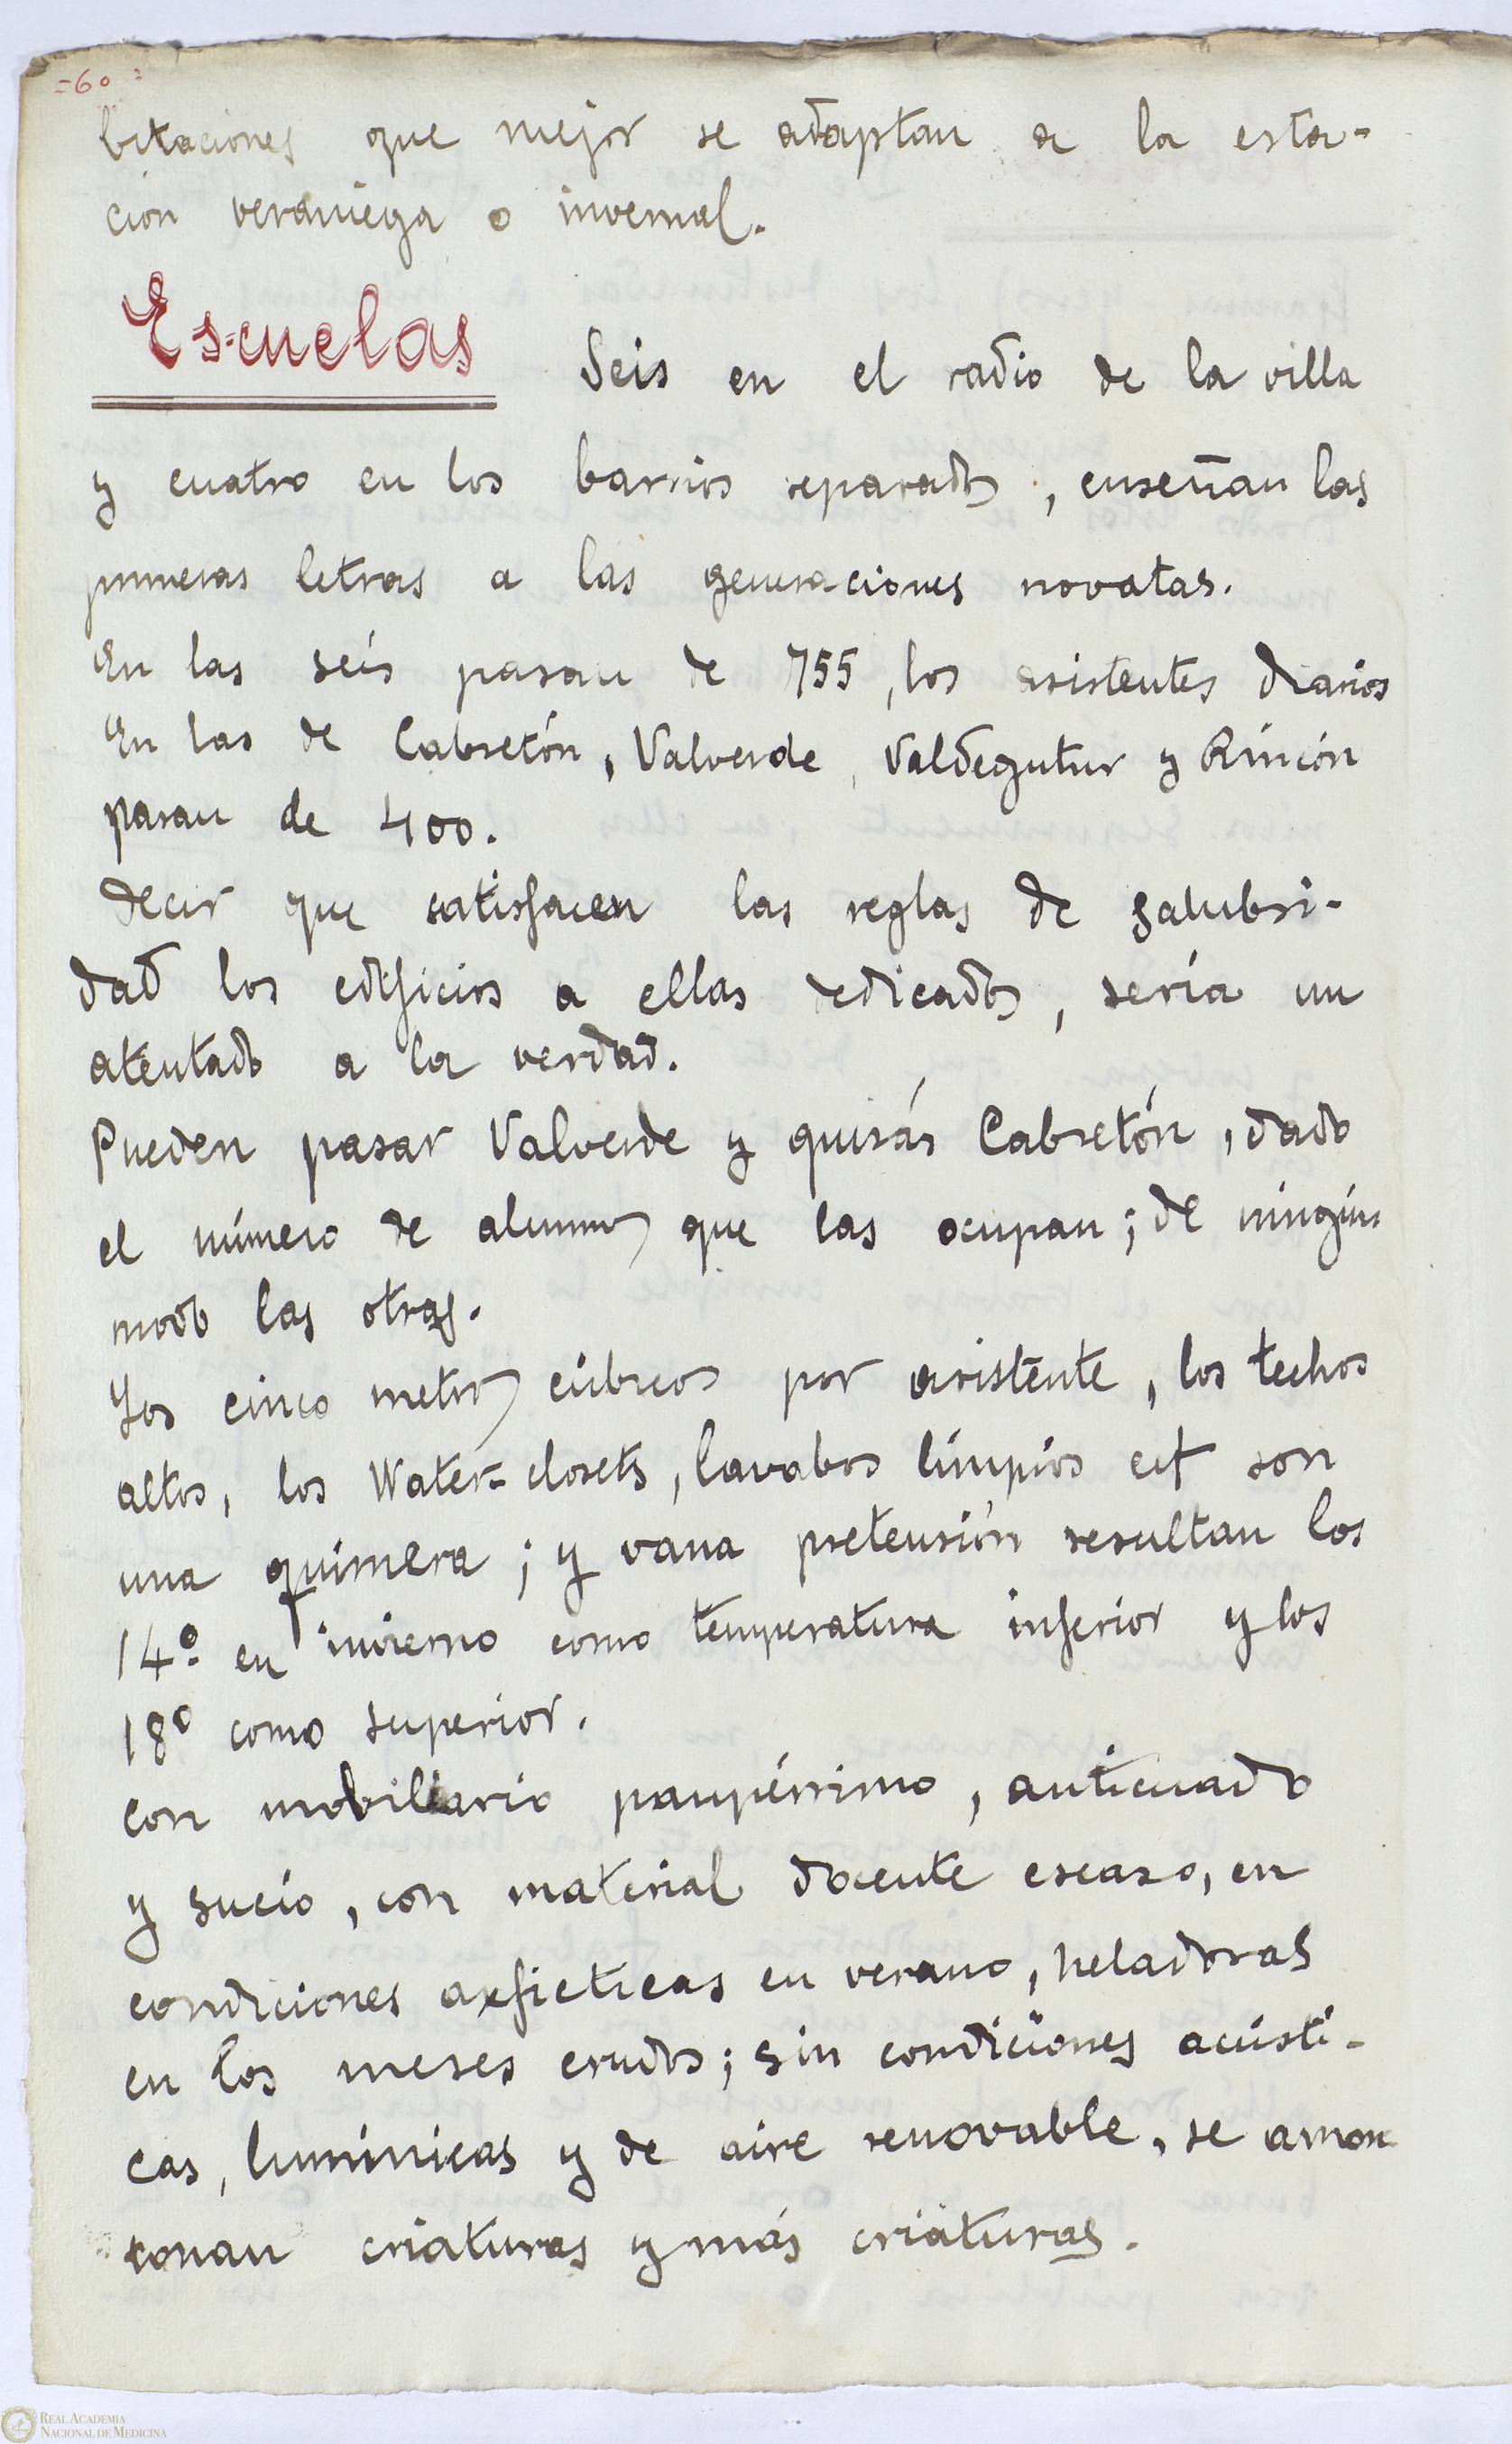 =60=
bitaciones que mejor se adaptan a la esta-
ción veraniega o invernal.
Escuelas
Seis en el radio de la villa
y cuatro en los barrios separados, enseñan las
primeras letras a las generaciones novatas.
En las seis pasan de 755, los asistentes diarios
En las de Cabretón, Valverde, Valdegutur y Rincón
pasan de 400.
Decir que satisfacen las reglas de salubri-
dad los edificios a ellas dedicados, sería un
atentado a la verdad.
Pueden pasar Valverde y quisás Cabretón, dado
el número de alumnos que las ocupan; de ningún
modo las otras.
Los cinco metros cúbicos por asistente, los techos
altos, los Water-closets, lavabos limpios ect son
una quimera; y vana pretensión resultan los
14º en invierno como temperatura inferior y los
18º como superior.
Con mobiliario paupérrimo, anticuado
y sucio, con material docente escaso, en
condiciones axficticas en verano, heladoras
en los meses crudos; sin condiciones acústi-
cas, lumínicas y de aire renovable, se amon
tonan criaturas y más criaturas.
REAL ACADEMIA
NACIONAL DE MEDICINA